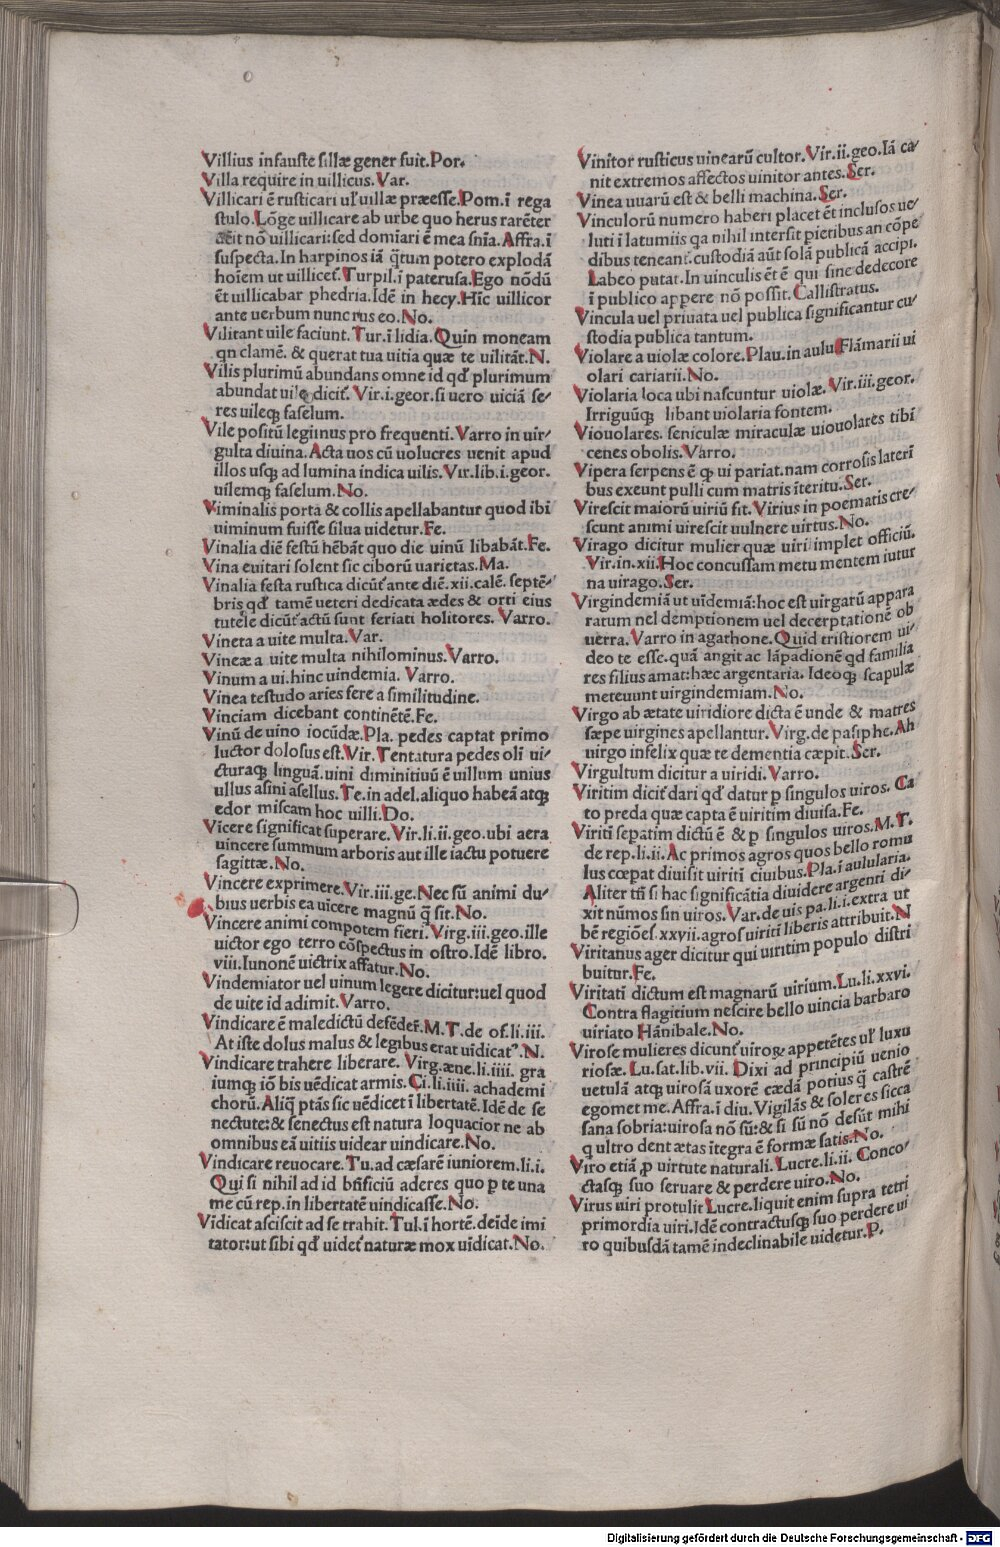 Villius infauste sillæ gener fuit.Por.
Villa require in uillicus.Var.
Villicari ē rusticari ul' uillæ præesse.Pom.ī rega
stulo.Lōge uillicare ab urbe quo herus rarēter
ueīt nō uillicari:sed domīari ē mea snīa.Affra.ī
suspecta.In harpinos iā q̄tum potero explodā
hoīem ut uillicet.Turpil.ī paterusa.Ego nōdū
ēt uillicabar phedria.Idē in hecy.Hic uillicor
ante uerbum nunc rus eo.No.
Vilitant uile faciunt.Tur.ī lidia.Quin moneam
qn clamē.& querat tua uitia quæ te uilitāt.N.
Vilis plurimū abundans omne id qd' plurimum
abundat uile dicit'.Vir.i.geor.si uero uiciā se/
res uileqꝫ faselum.
Vile positū legimus pro frequenti.Varro in uir/
gulta diuina.Acta uos cū uolucres uenit apud
illos usqꝫ ad lumina indica uilis.Vir.lib.i.geor.
uilemqꝫ faselum.No.
Viminalis porta & collis apellabantur quod ibi
uiminum fuisse silua uidetur.Fe.
Vinalia diē festū hēbāt quo die uinū libabāt.Fe.
Vina euitari solent sic ciborū uarietas.Ma.
Vinalia festa rustica dicūt' ante diē.xii.calē.septē/
bris qd' tamē ueteri dedicata ædes & orti eius
tutelę dicūt' actū sunt feriati holitores.Varro.
Vineta a uite multa.Var.
Vineæ a uite multa nihilominus.Varro.
Vinum a ui.hinc uindemia.Varro.
Vinea testudo aries fere a similitudine.
Vinciam dicebant continētē.Fe.
Vinū de uino iocūdæ.Pla.pedes captat primo
luctor dolosus est.Vir.Tentatura pedes oli ui/
cturaqꝫ linguā.uini diminitiuū ē uillum unius
ullus asini asellus.Te.in adel.aliquo habeā atqꝫ
edor miscam hoc uilli.Do.
Vicere significat superare.Vir.li.ii.geo.ubi aera
uincere summum arboris aut ille iactu potuere
sagittæ.No.
Vincere exprimere.Vir.iii.ge.Nec sū animi du/
bius uerbis ea uīcere magnū q̄ sit.No.
Vincere animi compotem fieri.Virg.iii.geo.ille
uictor ego terro cōspectus in ostro.Idē libro.
viii.Iunonē uictrix affatur.No.
Vindemiator uel uinum legere dicitur:uel quod
de uite id adimit.Varro.
Vindicare ē maledictū defēder̄.M.T.de of.li.iii.
At iste dolus malus & legibus erat uīdicat'.N.
Vindicare trahere liberare.Virg.æne.li.iiii.gra
iumqꝫ iō bis uēdicat armis.Ci.li.iiii.achademi
chorū.Aliq̄ ptās sic uēdicet ī libertatē.Idē de se
nectute:& senectus est natura loquacior ne ab
omnibus eā uitiis uidear uindicare.No.
Vindicare reuocare.Tu.ad cæsarē iuniorem.li.i.
Qui si nihil ad id bn̄ficiū aderes quo p te una
me cū rep.in libertatē uindicasse.No.
Vīdicat asciscit ad se trahit.Tul.ī hortē.deīde imi
tator:ut sibi qd' uidet' naturæ mox uīdicat.No.
Vinitor rusticus uinearū cultor.Vir.ii.geo.Iā ca/
nit extremos affectos uinitor antes.Ser.
Vinea uuarū est & belli machina.Ser.
Vinculorū numero haberi placet ēt inclusos ue/
luti ī latumiis qa nihil intersit pietibus an cōpe
dibus teneant'.custodiā aūt solā publicā accipi.
Labeo putat.In uinculis ēt ē qui sine dedecore
ī publico appere nō possit.Callistratus.
Vincula uel priuata uel publica significantur cu/
stodia publica tantum.
Violare a uiolæ colore.Plau.in aulu.Flāmarii ui
olari cariarii.No.
Violaria loca ubi nascuntur uiolæ.Vir.iii.geor.
Irriguūqꝫ libant uiolaria fontem.
Viouolares.seniculæ miraculæ uiouolares tibī
cenes obolis.Varro.
Vipera serpens ē qꝫ ui pariat.nam corrosis laterī
bus exeunt pulli cum matris īteritu.Ser.
Virescit maiorū uiriū fit.Virius in poematis cre/
scunt animi uirescit uulnere uirtus.No.
Virago dicitur mulier quæ uiri implet officiū.
Vir.in.xii.Hoc concussam metu mentem iutur
na uirago.Ser.
Virgindemiā ut uīdemiā:hoc est uirgarū appara
ratum nel demptionem uel decerptationē ob
uerra.Varro in agathone.Quid tristiorem ui/
deo te esse.quā angit ac lāpadionē qd familia
res filius amat:hæc argentaria.Ideoqꝫ scapulæ
meteuunt uirgindemiam.No.
Virgo ab ætate uiridiore dicta ē unde & matres
sæpe uirgines apellantur.Virg.de pasiphe.Ah
uirgo infelix quæ te dementia cæpit.Ser.
Virgultum dicitur a uiridi.Varro.
Viritim dicit' dari qd' datur p singulos uiros.Ca
to preda quæ capta ē uiritim diuisa.Fe.
Viriti separim dictū ē & p singulos uiros.M.T.
de rep.li.ii.Ac primos agros quos bello romu
lus cœpat diuisit uiriti ciuibus.Pla.ī aulularia.
Aliter tn̄ si hac significātia diuidere argenti di/
xit nūmos sin uiros.Var.de uis pa.li.i.extra ut
bē regiōes.xxvii.agros uiriti liberis attribuit.N
Viritanus ager dicitur qui uiritim populo distri
buitur.Fe.
Viritati dictum est magnarū uirium.Lu.li.xxvi.
Contra flagitium nescire bello uincia barbaro
uiriato Hānibale.No.
Virose mulieres dicunt' uiroꝝ appetētes ul' luxu
riosæ.Lu.sat.lib.vii.Dixi ad principiū uenio
uetulā atqꝫ uirosā uxorē cædā potius q̄ castrē
egomet me.Affra.ī diu.Vigilās & soler es sicca
sana sobria:uirosa nō sū:& si sū nō desūt mihi
q ultro dent ætas ītegra ē formæ satis.No.
Viro etiā p uirtute naturali.Lucre.li.ii.Conco/
ctasqꝫ suo seruare & perdere uiro.No.
Virus uiri protulit Lucre.liquit enim supra tetri
primordia uiri.Idē contractusqꝫ suo perdere ui
ro quibusdā tamē indeclinabile uidetur.P.
Digitalisierung gefördert durch die Deutsche Forschungsgemeinschaft - DFG